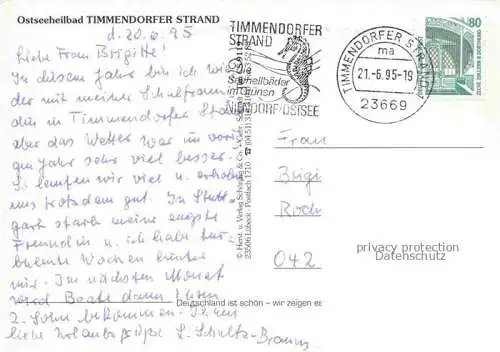 Ostseeheilbad TIMMENDORFER STRAND
d. 20.6.95
Liebe Frau Brigitte!
In diesem Jahr bin ich wied
der mit meiner Schulfreun
din in Timmendorfer Stra
aber das Wetter war im vori
gen Jahr sehr viel besser.
So laufen wir viel u. erholen
uns trotzdem gut. In Stutt
gart starb meine engste
Freundin u. ich habe tur
bulente Wochen hinter
mir. Im nächsten Monat
wird Beate dann ihren
2. Sohn bekommen. Ihnen
liebe Urlaubsgrüße S. Schultz-Braun
TIMMENDORFER
STRAND
Seeheilbäder
im Grünen
NIENDORF/OSTSEE
TIMMENDORFER STRAND
ma
21.-6.95-19
23669
80
© Herst. u. Verlag Schöning & Co. + Gebr. Schmidt
23506 Lübeck · Postfach 1710 ☎ (04 51) 31
Frau
Brigi
Roch
042
privacy protection
Datenschutz
Deutschland ist schön – wir zeigen es